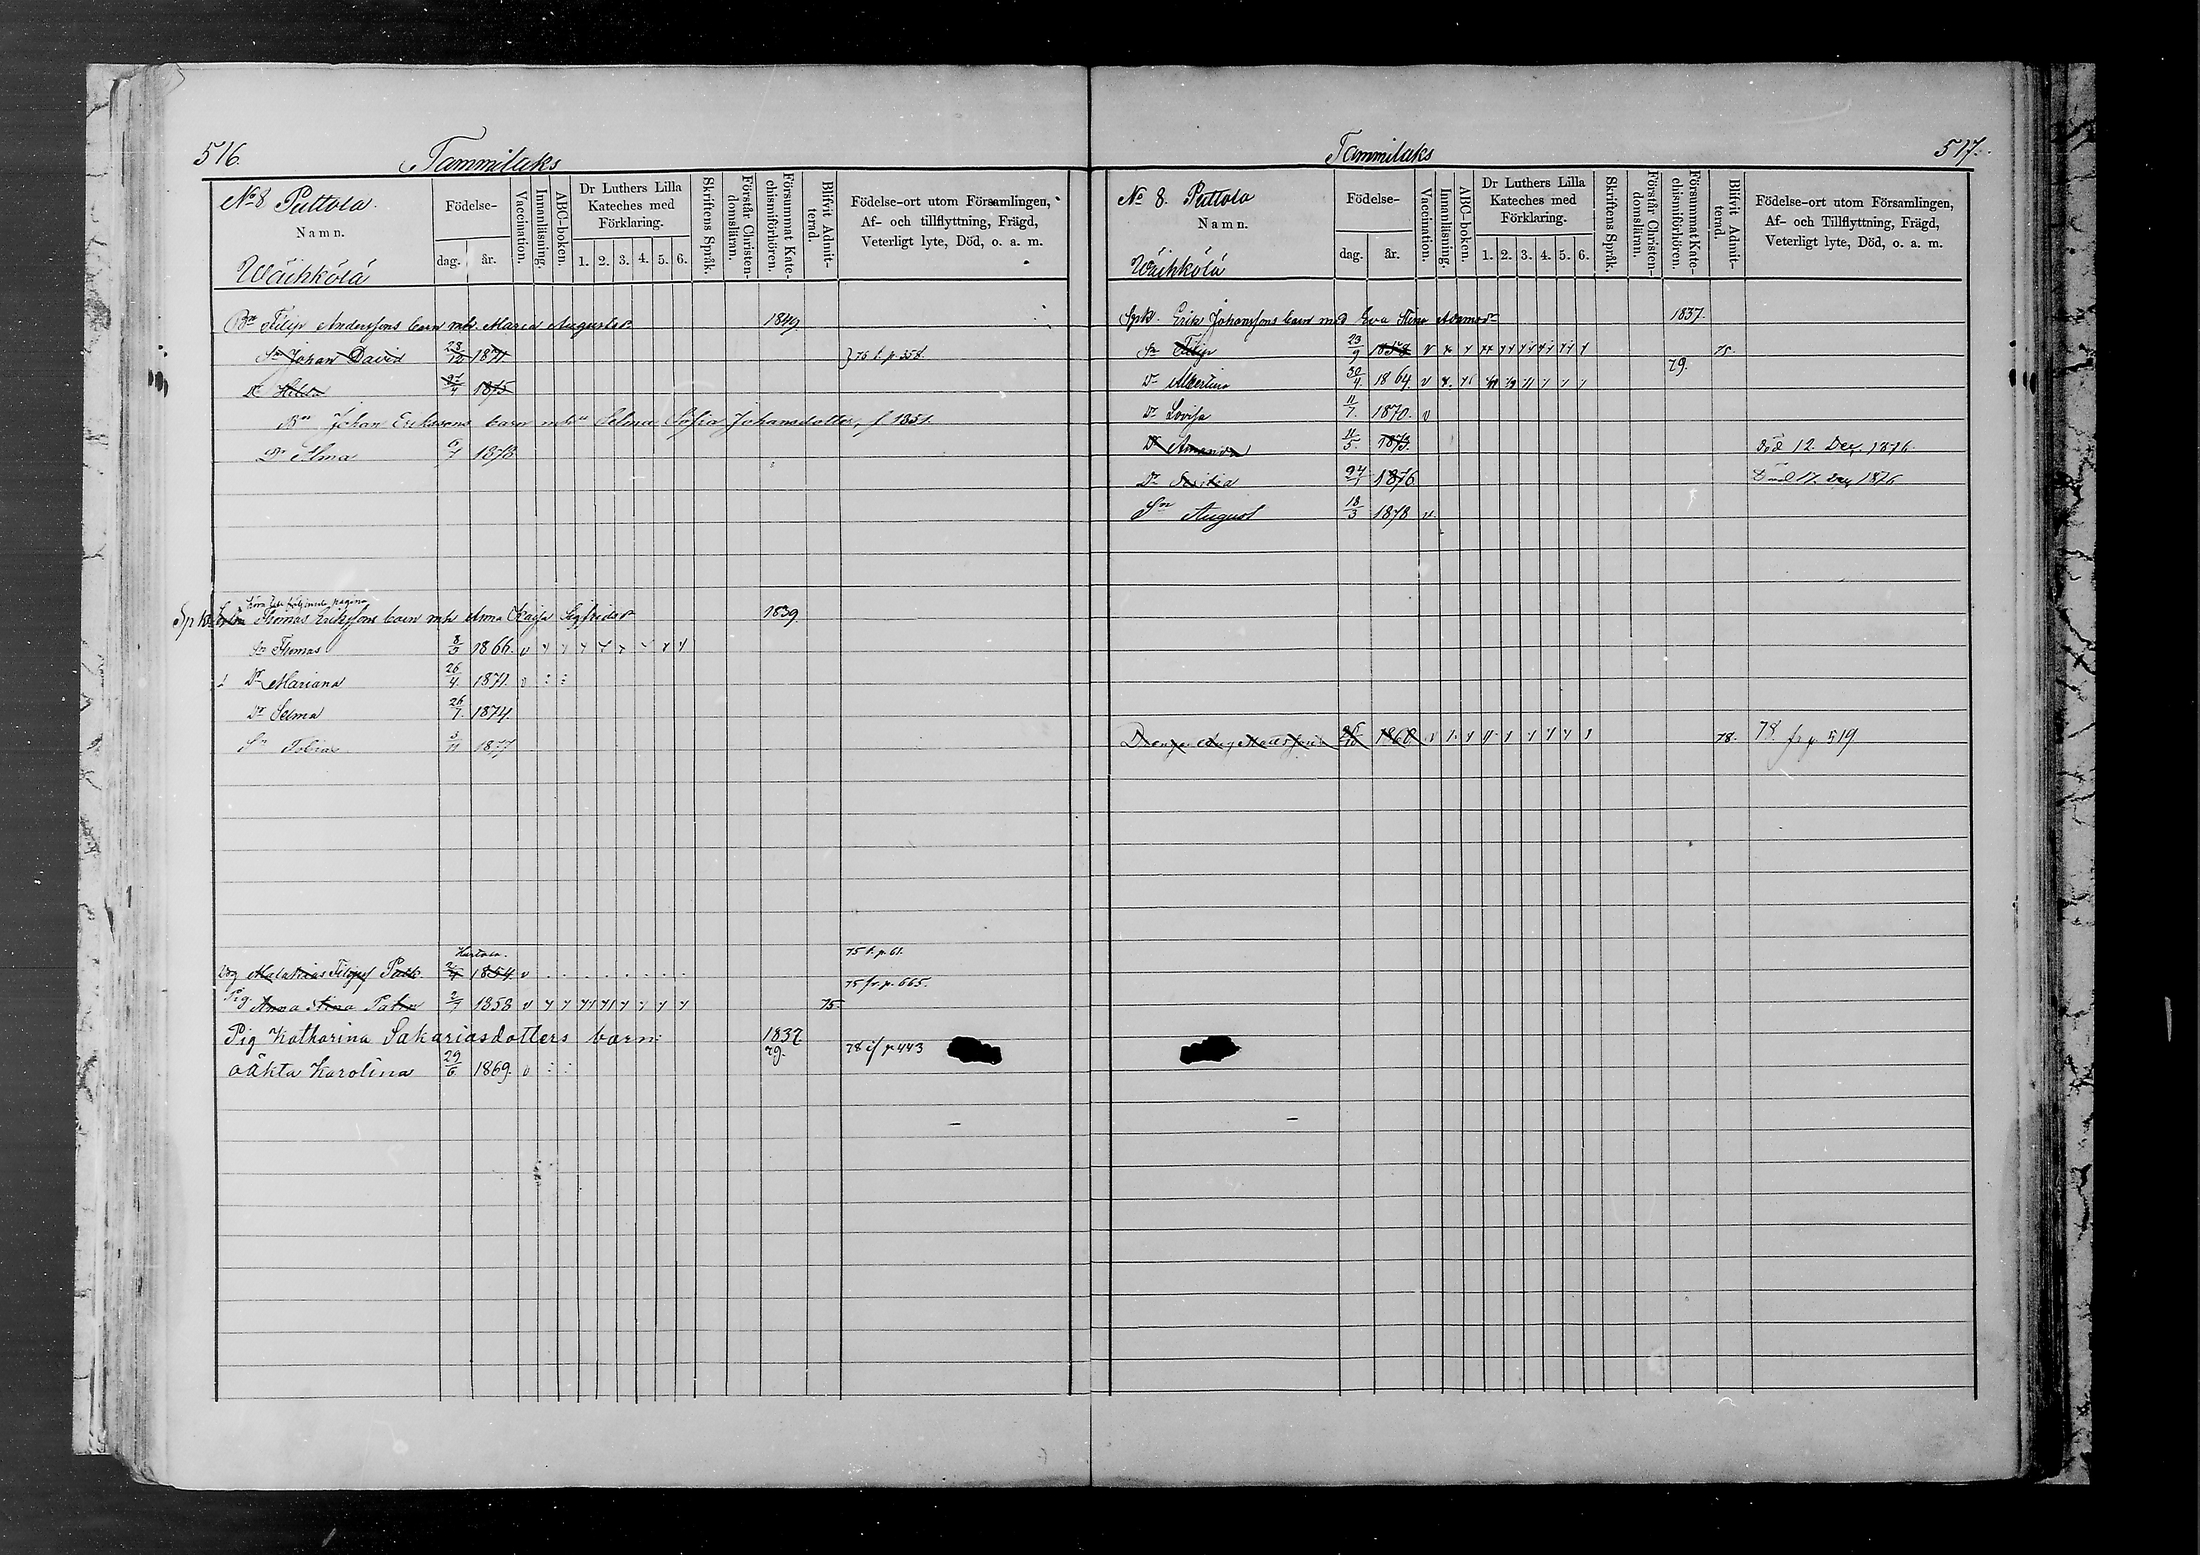 516.
Tammilaks
No 8 Puttola.
Namn.
Wäihkölä
Födelse-
dag. år.
Vaccination.
Innanläsning.
ABC-boken.
Dr Luthers Lilla Kateches med Förklaring.
1. 2. 3. 4. 5. 6.
Skriftens Språk.
Förstår Christendomsläran.
Försummat Katechismiförhören.
Blifvit Admitterad.
Födelse-ort utom Församlingen,
Af- och tillflyttning, Frägd,
Veterligt lyte, Död, o. a. m.
Bn Filip Anderssons barn mh. Maria Augustdr 1849
Sn Johan David 28/10 1871 } 75 t. p. 358.
Dr Hilda 1875
Bn Johan Erikssons barn mhu Selma Sofia Johansdotter, f 1851.
Dr Alma 6/1 1878
barn på följande pagina
Spk Thomas Erikssons barn mh Anna Kaisa Sigfridsdr 1839
Sn Thomas 8/3 1866. v
Dr Mariana 26/4 1871. v
Dr Selma 26/7. 1874.
Sn Tobias 3/11 1877
75 t. p. 61.
Drg Malakias Filipsf Pukk. 1854. v
75 fr. p. 665.
Pig Anna Stina 2/7 1858 v 75
Pig Katharina Sakariasdotters barn: 1837
79. 78 if p 443
oäkta Karolina 29/6 1869. v
Tammilaks
517.
No 8. Puttola
Namn.
Wäihkölä
Födelse-
dag. år.
Vaccination.
Innanläsning.
ABC-boken.
Dr Luthers Lilla Kateches med Förklaring.
1. 2. 3. 4. 5. 6.
Skriftens Språk.
Förstår Christendomsläran.
Försummat Katechismiförhören.
Blifvit Admitterad.
Födelse-ort utom Församlingen,
Af- och Tillflyttning, Frägd,
Veterligt lyte, Död, o. a. m.
Spk. Erik Johanssons barn med Eva Stina Adamsdr 1837.
Sn Filip 23/9 1858 v 75.
79.
Dr Albertina 30/4. 1864. v
Dr Lovisa 11/7. 1870. v
Dr Amanda 11/5. 1873. Död 12. Dec. 1876.
Dr 24/1 1876 Död 17. Dec 1876
Sn August 18/3 1878 v
Drengen Aug Mattsson 1860. 78. 78. fr p 519